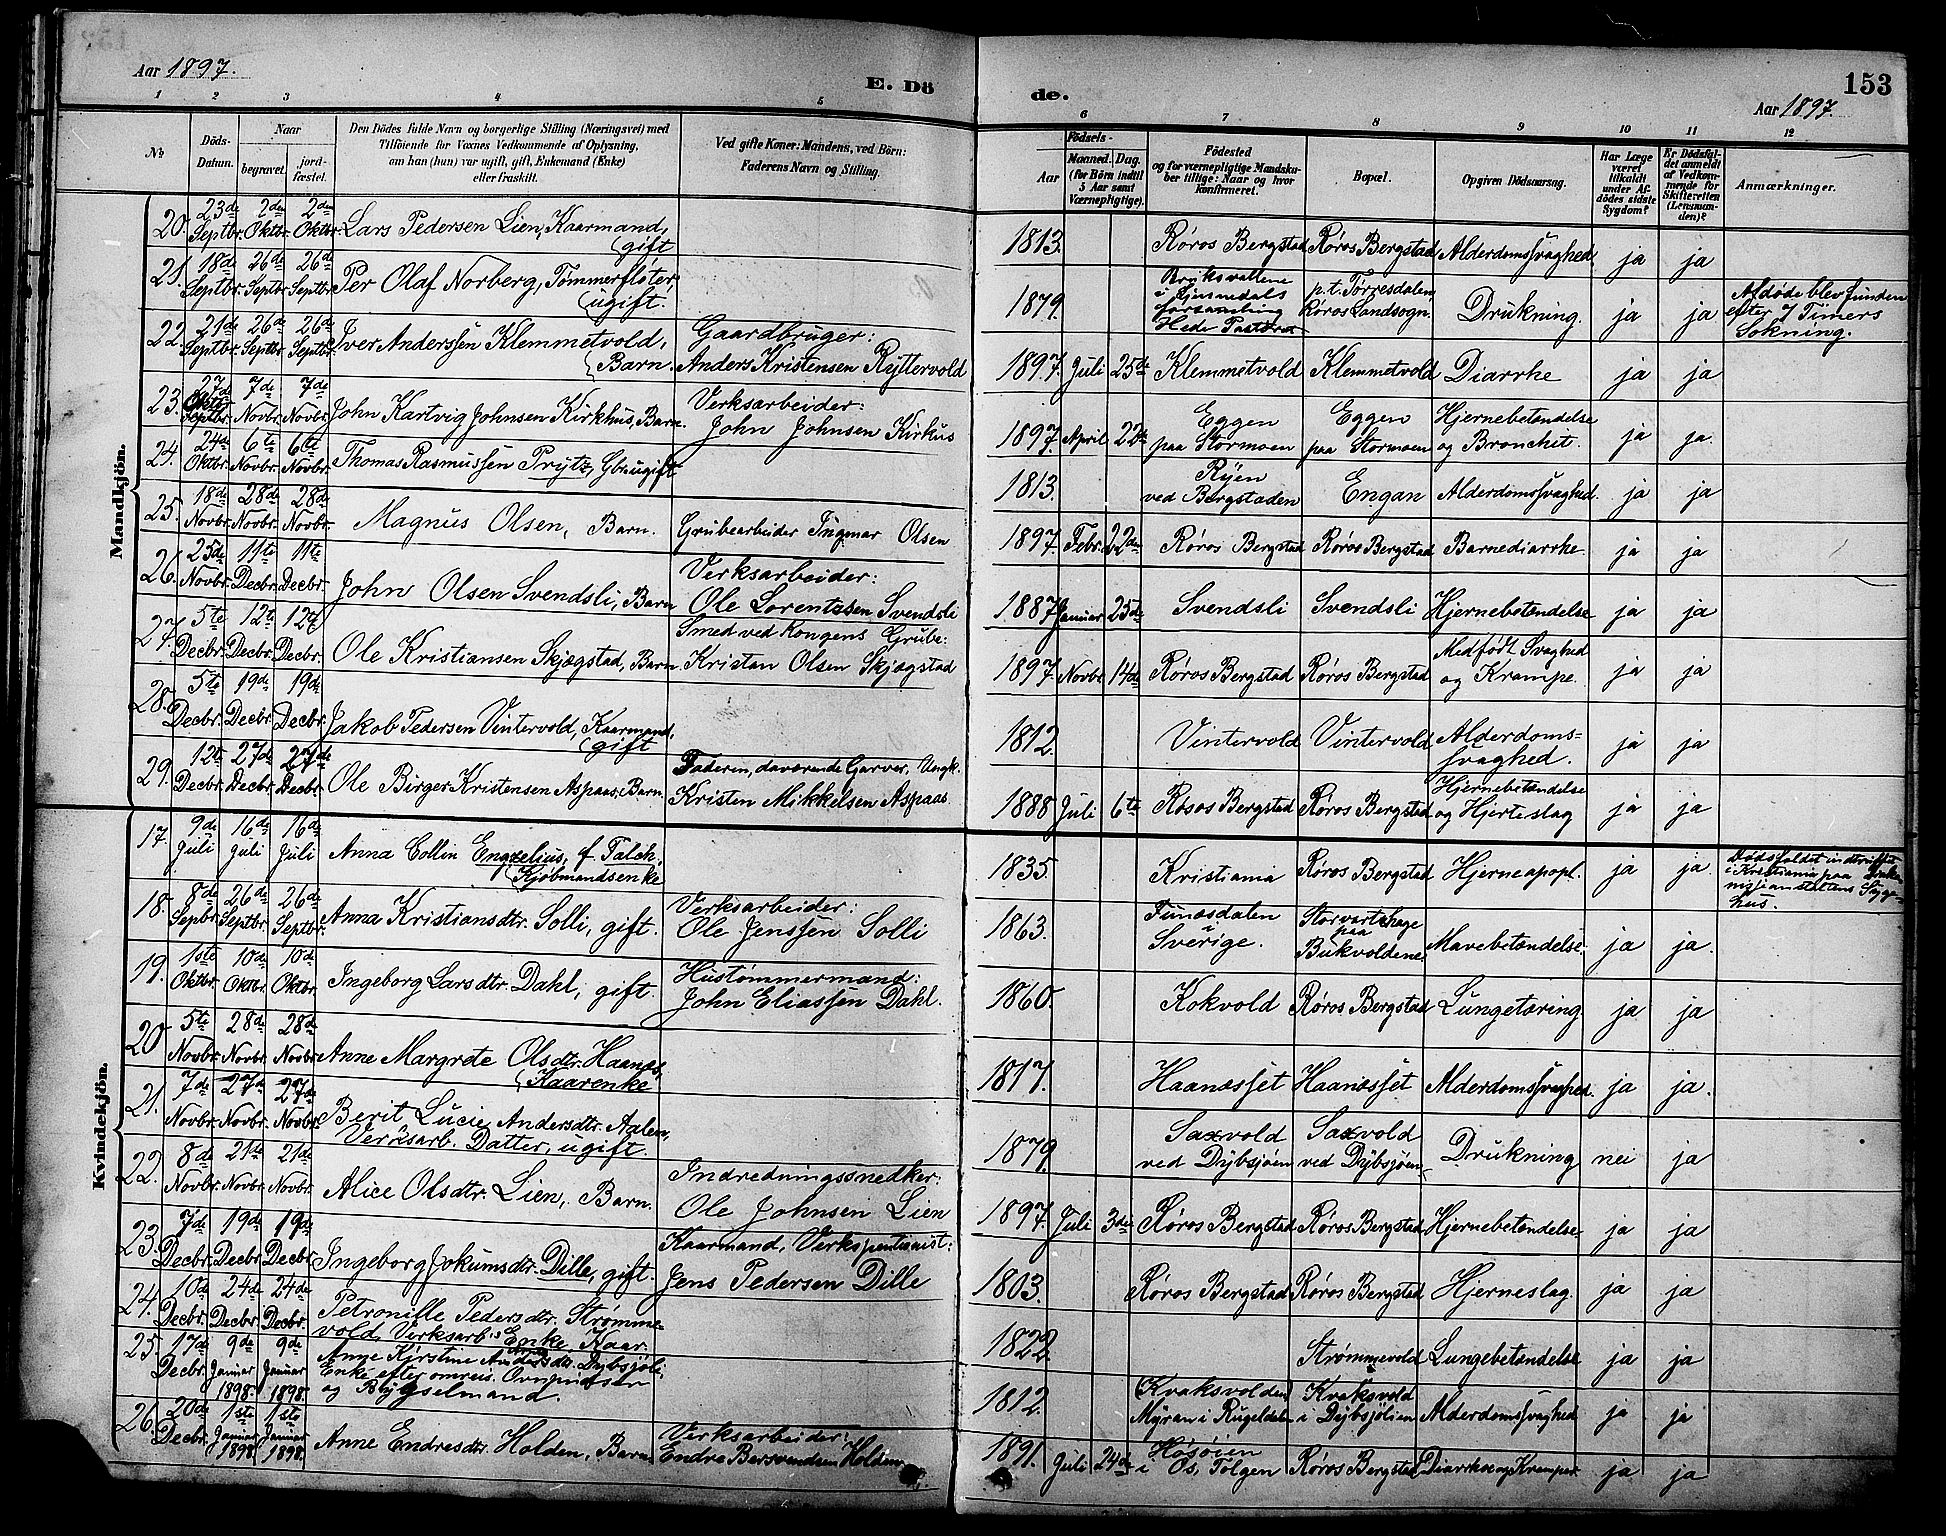 Aar 1897.
E. Dö
de.
153
Aar 1897.
1 2 3 4 5 6 7 8 9 10 11 12
№
Döds-
Datum.
Naar
begravet.
jord-
fæstet.
Den Dödes fulde Navn og borgerlige Stilling (Næringsvei) med
Tilföiende for Voxnes Vedkommende af Oplysning,
om han (hun) var ugift, gift, Enkemand (Enke)
eller fraskilt.
Ved gifte Koner: Mandens, ved Börn:
Faderens Navn og Stilling.
Födsels-
Aar
Maaned. Dag.
(for Börn indtil
5 Aar samt
Værnepligtige).
Födested
og for værnepligtige Mandska-
ber tillige: Naar og hvor
konfirmeret.
Bopæl.
Opgiven Dödsaarsag.
Har Læge
været
tilkaldt
under Af-
dödes sidste
Sygdom?
Er Dödsfal-
det anmeldt
af Vedkom-
mende for
Skifteretten
(Lensman-
den)?
Anmærkninger.
Mandkjön.
20. 23de Septbr. 2den Oktbr. 2den Oktbr. Lars Pedersen Lien, Kaarmand,
gift
1813. Røros Bergstad Røros Bergstad Alderdomssvaghed. ja ja
21. 18de Septbr. 26de Septbr. 26de Septbr. Per Olaf Norberg, Tømmerfløter,
ugift.
1879. Bruksvallene
i Ljusnedals
forsamling
Hede Pastorat
p.t. Torresdalen,
Røros Landsogn.
Drukning. ja ja
Afdøde blev funden
efter 7 Timers
Søkning.
22. 21de Septbr. 26de Septbr. 26de Septbr. Iver Anderssen Klemmetvold,
Barn.
Gaardbruger:
Anders Kristensen Ryttervold
1897. Juli 25de Klemmetvold Klemmetvold Diarrhe ja ja
23. 27de Oktbr. Septbr. 7de Novbr. 7de Novbr. John Hartvig Johnsen Kirkhus, Barn.
Verksarbeider:
John Johnsen Kirkus
1897. April 22de Eggen
paa Stormoen
Eggen
paa Stormoen
Hjernebetændelse
og Bronchit. ja ja.
24. 24de Oktbr. 6te Novbr. 6te Novbr. Thomas Rasmussen Prytz, Gbr. ugift
1813. Ryen
ved Bergstaden
Engan Alderdomssvaghed. ja ja
25. 18de Novbr. 28de Novbr. 28de Novbr. Magnus Olsen, Barn. Grubearbeider Ingmar Olsen
1897. Febr. 22den Røros Bergstad Røros Bergstad Barnediarrhe. ja ja
26. 25de Novbr. 11te Decbr. 11te Decbr. John Olsen Svendsli, Barn
Verksarbeider:
Ole Lorentssen Svendsli
1887 Januar 25de Svendsli Svendsli Hjernebetændelse ja ja
27. 5te Decbr. 12te Decbr. 12te Decbr. Ole Kristiansen Skjægstad, Barn
Smed ved Kongens Grube:
Kristan Olsen Skjægstad
1897. Novbr. 14de Røros Bergstad Røros Bergstad Medfødt Svaghed
og Krampe. ja ja
28. 5te Decbr. 19de Decbr. 19de Decbr. Jakob Pedersen Vintervold, Kaarmand,
gift
1812. Vintervold Vintervold Alderdoms-
svaghed. ja ja
29. 12te Decbr. 27de Decbr. 27de Decbr. Ole Birger Kristensen Aspaas, Barn.
Faderen, daværende Garver, Ungk.
Kristen Mikkelsen Aspaas.
1888 Juli 6te Røros Bergstad Røros Bergstad Hjernebetændelse
og Hjerteslag ja ja
Kvindekjön.
17. 9de Juli 16de Juli 16de Juli Anna Collin Engzelius, f. Falch,
Kjøbmandsenke
1835. Kristiania Røros Bergstad Hjerneapopl. ja ja.
Dødsfaldet indtruffet
i Kristiania paa Diako-
nisseanstaltens Syge-
hus.
18. 8de Septbr. 26de Septbr. 26de Septbr. Anna Kristiansdtr. Solli, gift.
Verksarbeider:
Ole Jenssen Solli
1863. Funæsdalen
i
Sverige.
Storvartshage
paa
Bukvoldene
Mavebetændelse. ja ja
19. 1ste Oktbr. 10de Oktbr. 10de Oktbr. Ingeborg Larsdtr. Dahl, gift.
Hustømmermand:
John Eliassen Dahl.
1860. Kokvold Røros Bergstad Lungetæring ja ja
20. 5te Novbr. 28de Novbr. 28de Novbr. Anne Margrete Olsdtr. Haanæs,
Kaarenke
1817. Haanæsset Haanæsset Alderdomssvaghed. ja ja.
21. 7de Novbr. 27de Novbr. 27de Novbr. Berit Lucie Andersdtr. Aalen,
Verksarb. Datter, ugift.
1879. Saxvold
ved Dybsjøen
Saxvold
ved Dybsjøen
Drukning nei ja
22. 8de Novbr. 21de Novbr. 21de Novbr. Alice Olsdtr. Lien, Barn.
Indredningssnedker:
Ole Johnsen Lien
1897. Juli 3de Røros Bergstad Røros Bergstad Hjernebetændelse ja ja
23. 7de Decbr. 19de Decbr. 19de Decbr. Ingeborg Jokumsdtr. Dille, gift.
Kaarmand, Verkspentionist:
Jens Pedersen Dille
1803. Røros Bergstad Røros Bergstad Hjerneslag. ja ja
24. 10de Decbr. 24de Decbr. 24de Decbr. Petronille Pedersdtr. Strømme-
vold, Verksarb.s Enke, Kaar.
1822. Strømmevold Lungebetændelse ja ja
25. 17de Decbr. 9de Januar 1898. 9de Januar 1898. Anne Kjirstine Andersdtr. Dybsjøli,
Enke efter omreis. Ovnpudser
og Bygselmand.
1812. Kvaksvolden
Myran i Rugeldalen
Kvaksvold
i Dybsjølien
Alderdomssvaghed ja ja
26. 20de Decbr. 1ste Januar 1898. 1ste Januar 1898. Anne Endresdtr. Holden, Barn
Verksarbeider:
Endre Bersvendsen Holden.
1891. Juli 24de Høsøien
i Os, Tolgen Røros Bergstad Diarrhoe og Kramper. ja ja